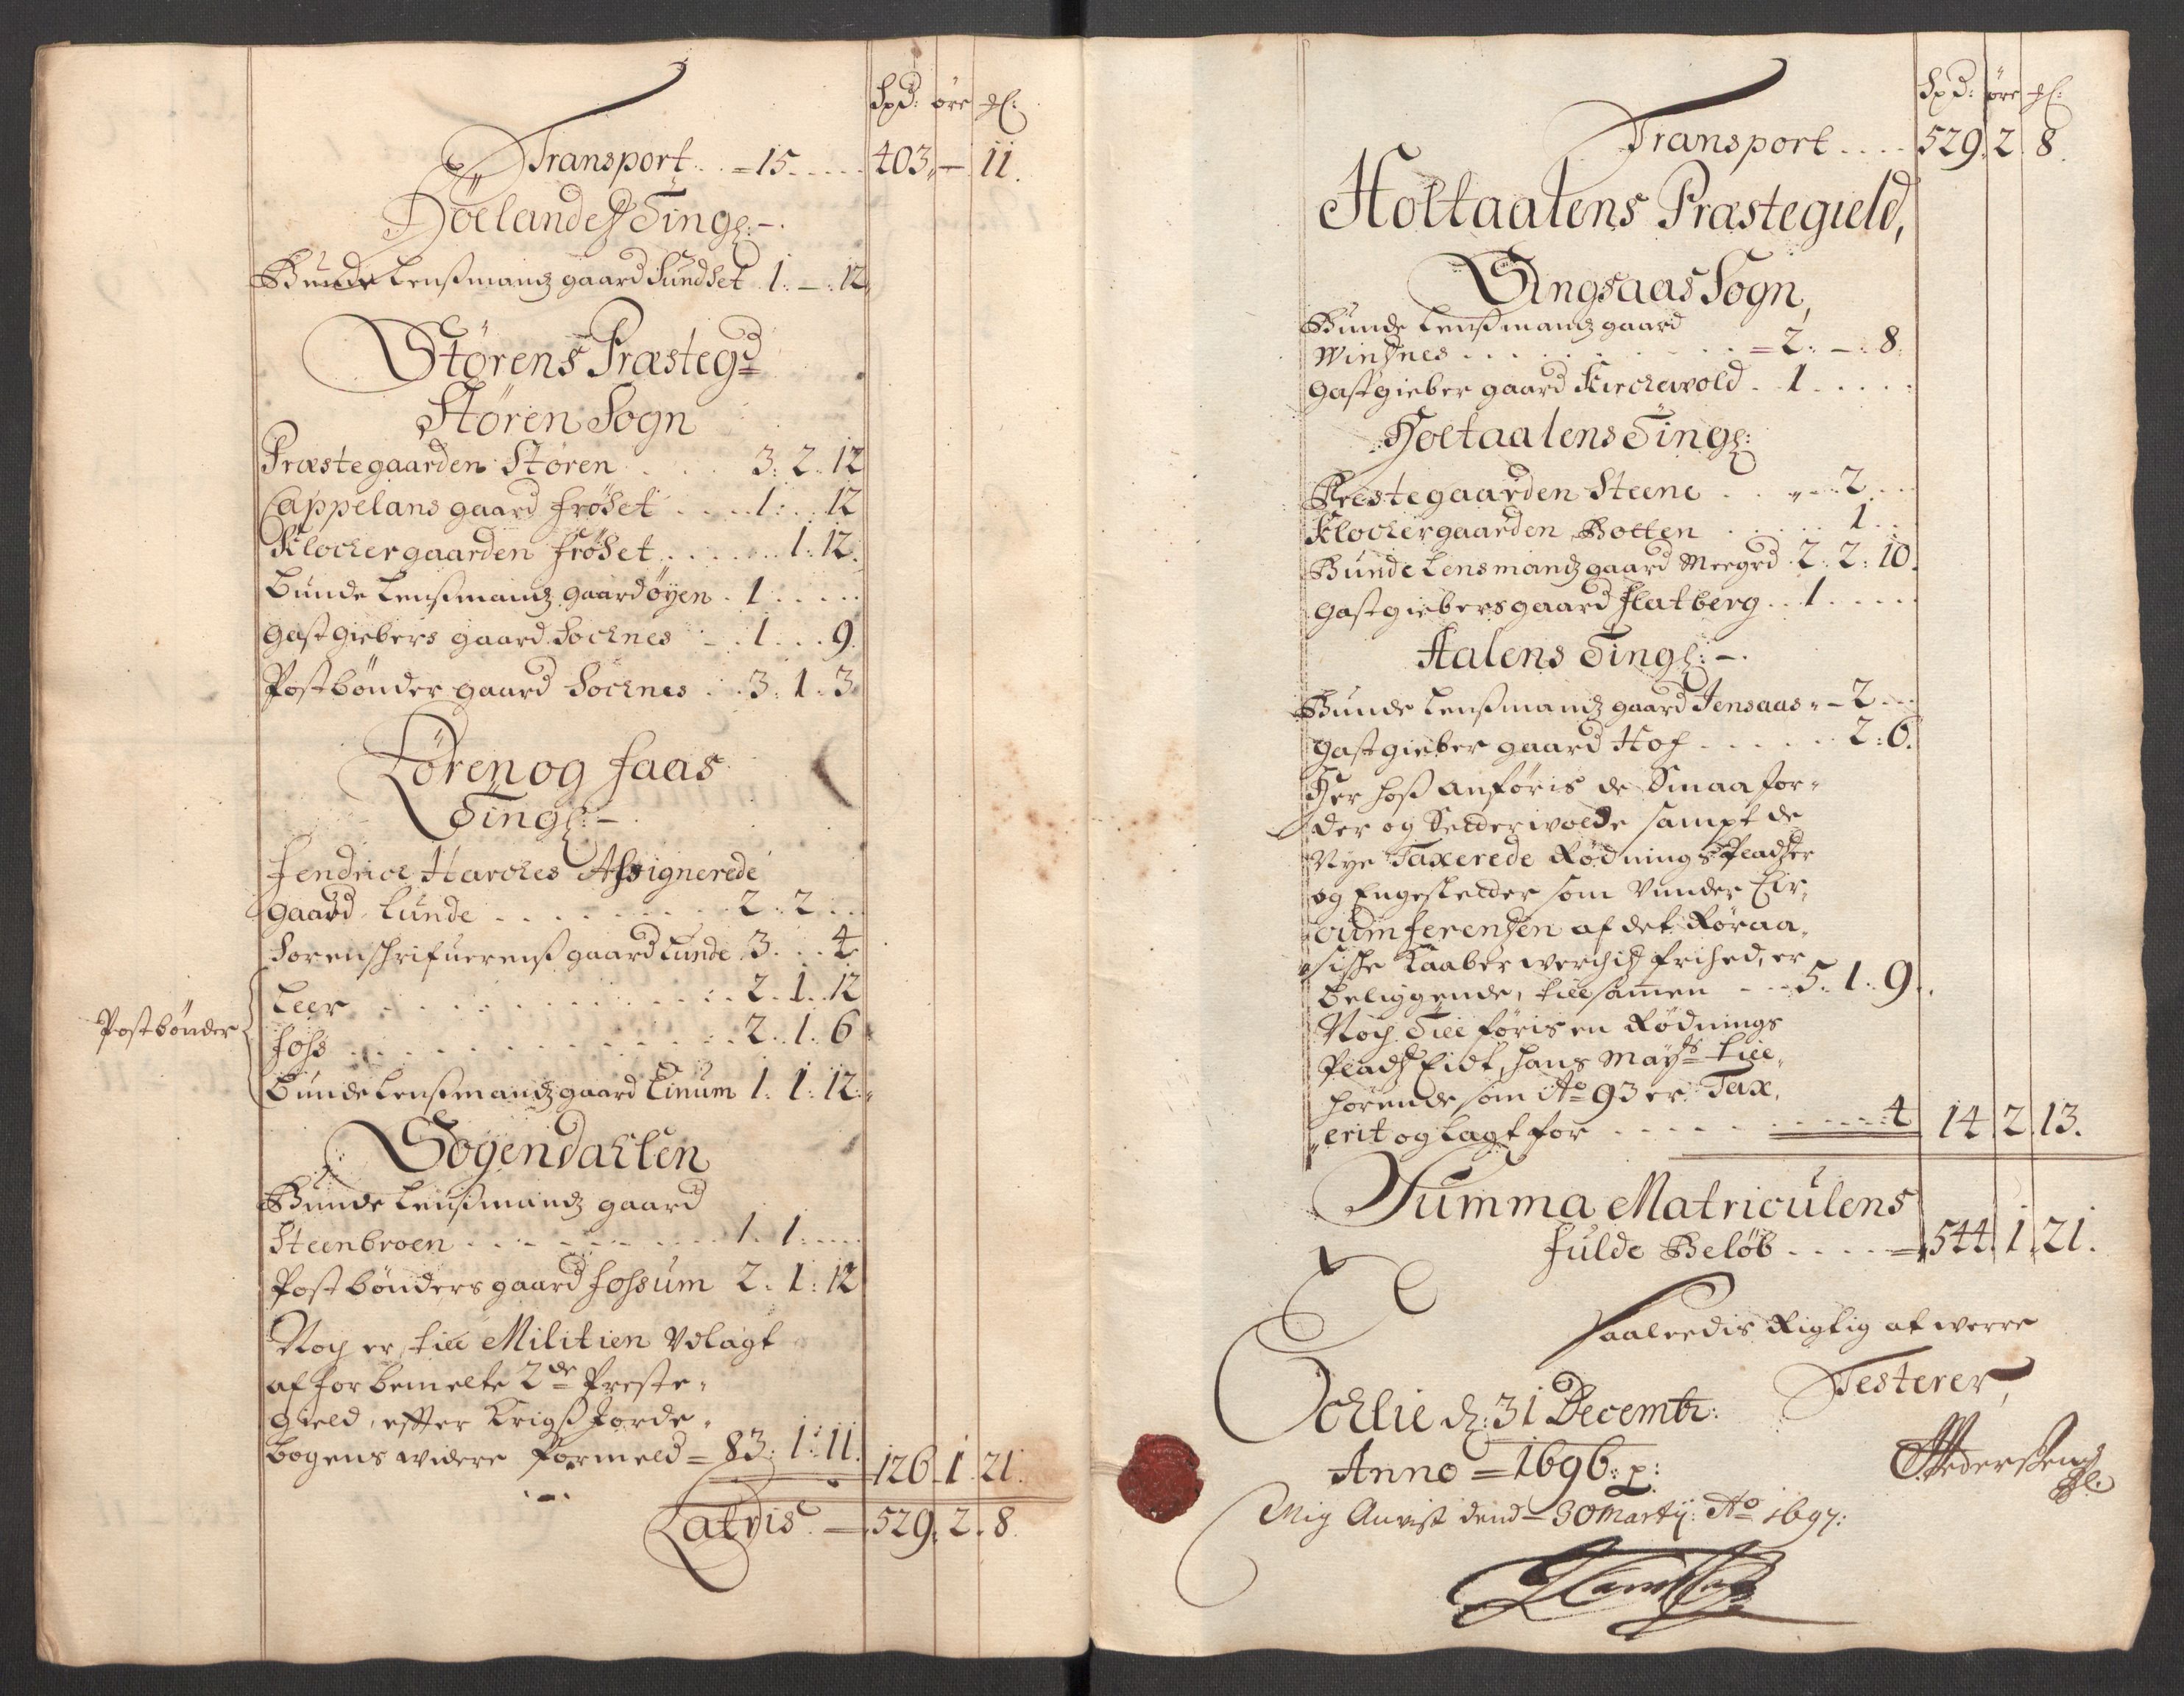 Spd: öre ₰:
Transport . . = 15 . . . . . 403. — 11.
Hölandes Tingl: —.
Bunde Lenßmandz gaard Sundset 1. — . 12
Störens Præsteg:d
Stören Sogn
Præstegaarden Stören . . . . 3: 2. 12
Cappelans gaard fröset . . . . 1: . . 12
Klochergaarden fröset . . . . . . 1: 12.
Bunde Lenßmandz gaard öyen . 1 . . . . .
Gastgiebers gaard Sochnes . . 1 . . . 9.
Postbönder gaard Sochnes . . 3: 1. 3
Hören og faas
Tingl: —
Fendrich Harches Assignerede
gaard Lunde . . . . . . . . . 2: 2 . .
Sorenschrifuerenß gaard Lunde . 3 . . . 4
Postbönder
Leer . . . . . . . . . . . 2. 1. 12
foss . . . . . . . . . . . 2. 1. 6
Bunde Lenßmandz gaard Linum 1. 1. 12.
Sogendahlen
Bunde Lenßmandz gaard
Steenbroen . . . . . . . . 1. 1 . . . .
Postbönders gaard fossum 2. 1. 12
Noch er till Militien Udlagt
af forbemelte 2de Preste-
gield, effter Krigß Jorde-
bogens widere formeld = 83: 1: 11. 126. 1. 21.
Latris — 529. 2. 8.
Spd: öre ₰:
Transport . . . . 529. 2. 8.
Holtaalens Præstegield,
Singsaas Sogn,
Bunde Lenßmandz gaard
Windsnes . . . . . . . . . = 2: — : 8.
Gastgieber gaard Kirchewold . . 1 . . . . .
Holtaalens Tingl:
Prestegaarden Steene . . . . . 2 . . .
Klochergaarden Botten . . . . . 1 . .
Bunde Lensmandz gaard Meegrd . 2: 2: 10.
Gastgiebers gaard flatberg . . 1 . . . . .
Aalens Tingl: —.
Bunde Lenßmandz gaard Jensaas . — 2 . . .
Gastgieber gaard Hof . . . . . . 2: 6.
Her hoß anföris de Smaa for-
der og Setderwolde sampt de
Nye Taxerede Rödnings Pladser
og Engesletder som Vnnder Cir-
cumferenzen af det Röraa-
sische Kaaberwerchiz frihed, er
beliggende, tillsamen . . . 5. 1. 9.
Noch Till föris en Rödnings
Pladz Eidt, hans Mayts till-
hörende som Ao 93 er Tax-
erit og lagt for . . . . . . . . . 4 14. 2. 13.
Summa Matriculens
fulde Belöb . . . . = 544. 1. 21.
Saaleedis Rigtig at werre
Testerer,
Oehlie d: 31 Decembr:
Anno = 1696: p:
Pedersen
Mig Anvist dend 30 Martij: Ao 1697: